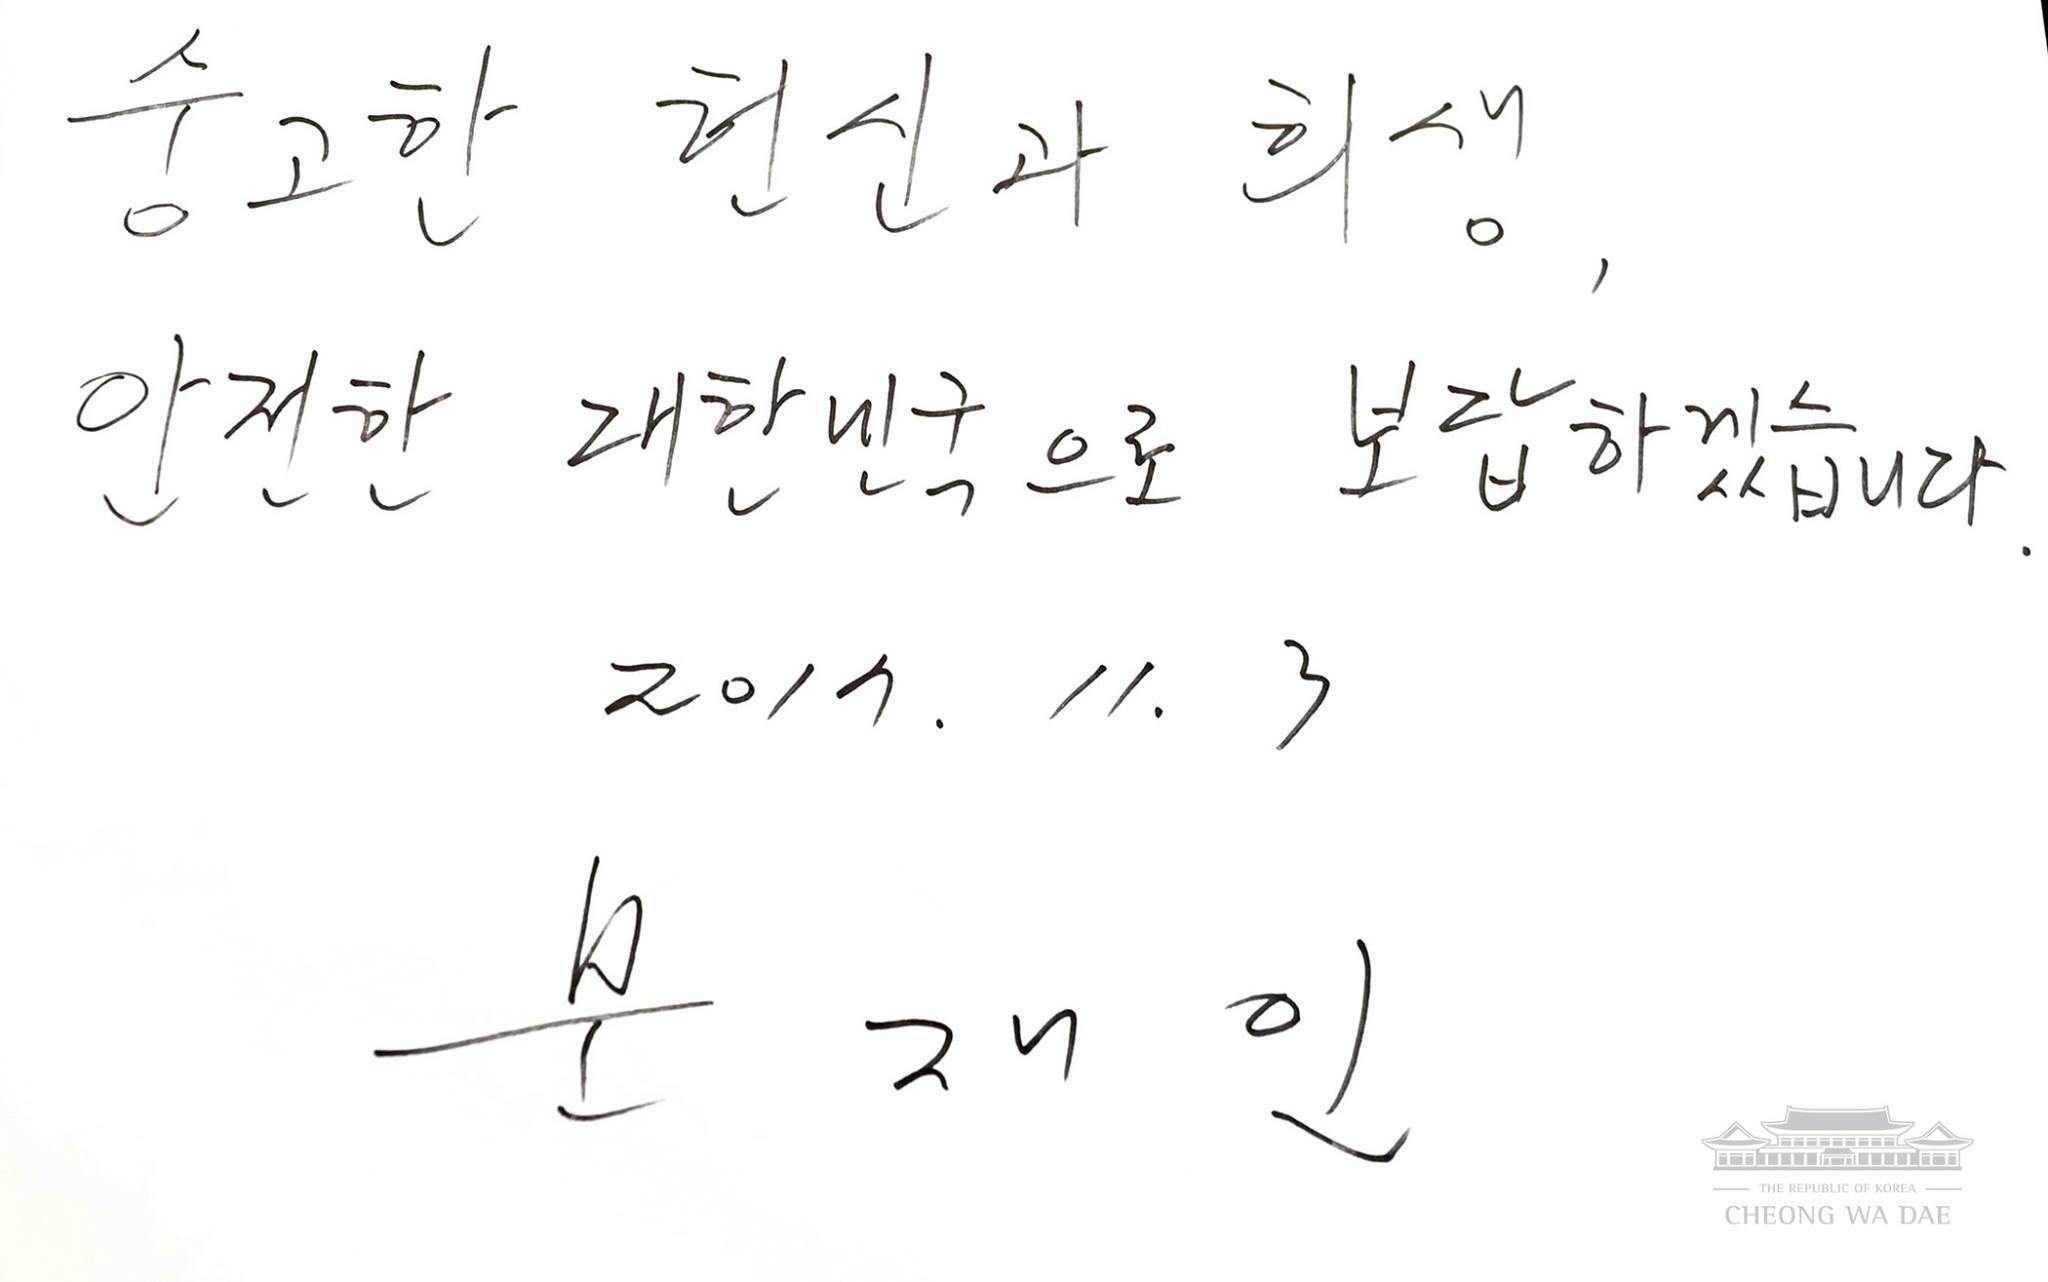 숭고한 헌신과 희생,
안전한 대한민국으로 보답하겠습니다.
2017. 11. 3
문재인
THE REPUBLIC OF KOREA
CHEONG WA DAE